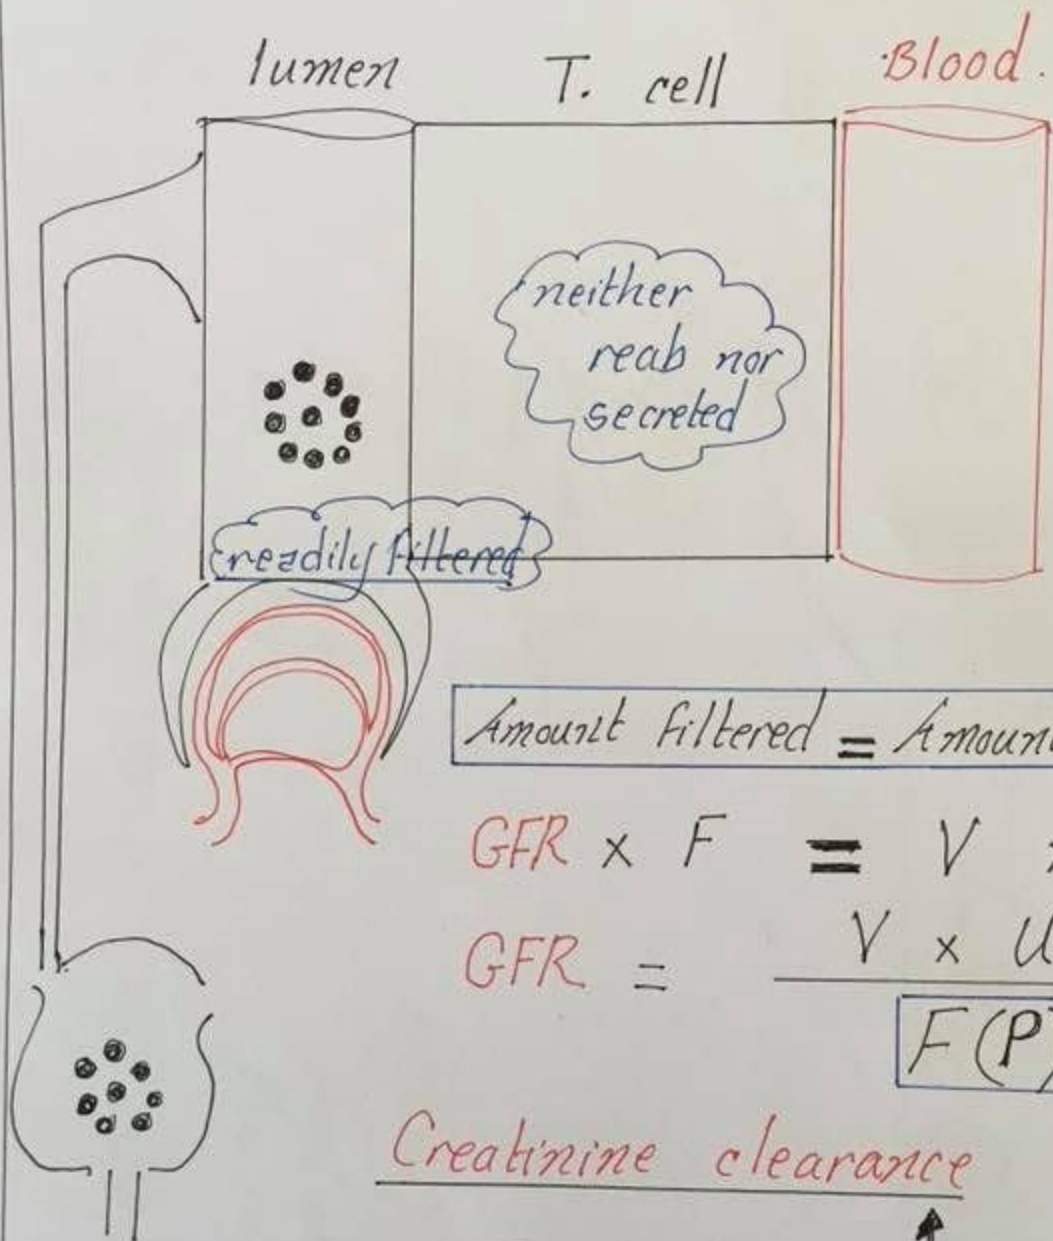 lumen
T. cell
Blood.
neither
reab nor
secreted
readily filtered
Amount filtered =
GFR x F = V
GFR =
V x U
F(P)
Creatinine clearance